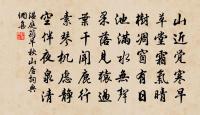 山近覺寒早
草堂霜氣晴
樹凋窗有日
池滿水無聲
果落見猿過
葉乾聞鹿行
素琴機慮靜
空伴夜泉清
溫庭筠早秋山居詞典
網